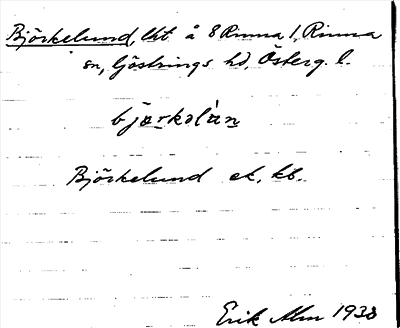 Björkelund, lht å 8 Rinna 1, Rinna
sn, Göstrings hd, Österg. l.
bjørkəlàn
Björkelund ek. kb.
Erik Alm 1938